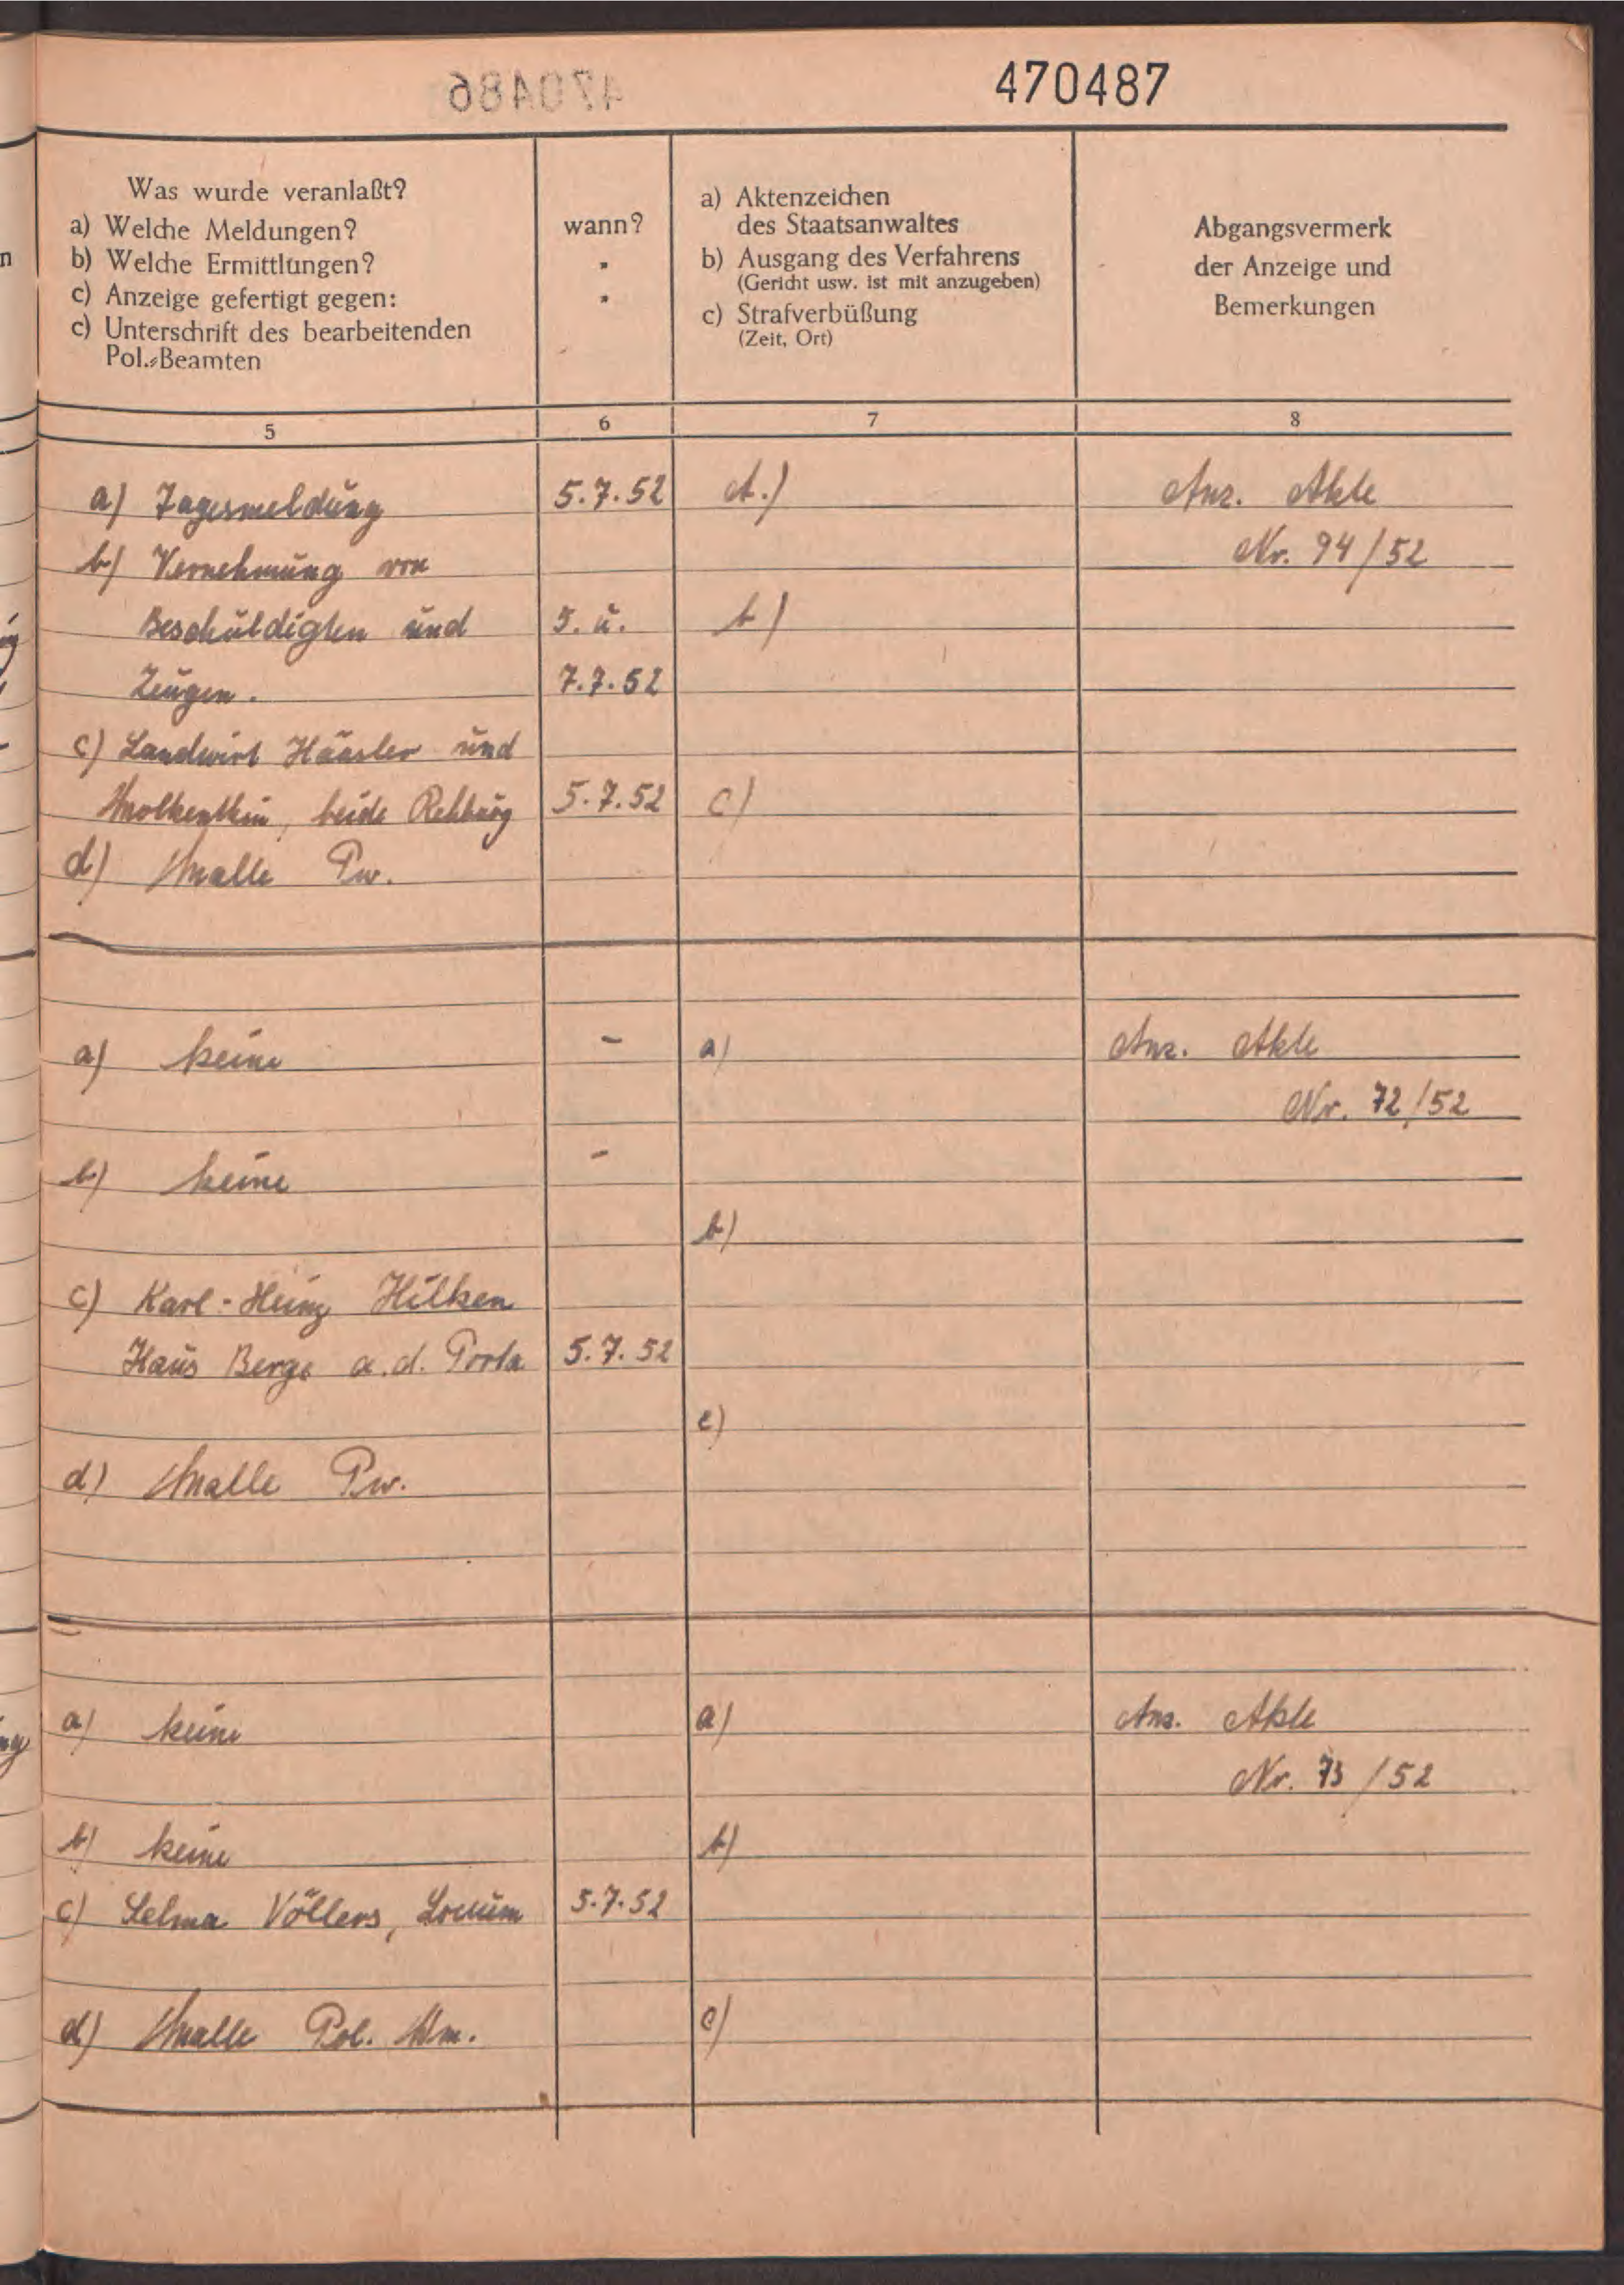 470487
Was wurde veranlaßt?
a) Welche Meldungen?
b) Welche Ermittlungen?
c) Anzeige gefertigt gegen:
c) Unterschrift des bearbeitenden
Pol.-Beamten
wann?
"
"
a) Aktenzeichen
des Staatsanwaltes
b) Ausgang des Verfahrens
(Gericht usw. ist mit anzugeben)
c) Strafverbüßung
(Zeit, Ort)
Abgangsvermerk
der Anzeige und
Bemerkungen
5 6 7 8
a) Tagesmeldung 5.7.52 A.) Anz. Akte
b) Vernehmung von Nr. 94/52
Beschuldigten und 5. u. b)
Zeugen. 7.7.52
c) Landwirt und
beide Rehburg 5.7.52 c)
d) Pw.
a) keine - a) Anz. Akte
Nr. 72/52
b) keine -
b)
c) Karl-Heinz Hilken
Haus Berge a.d. Porta 5.7.52
c)
d) Pw.
a) keine a) Anz. Akte
Nr. 73/52
b) keine b)
c) Selma Völlers, Loccum 5.7.52
d) Pol. Wm. c)